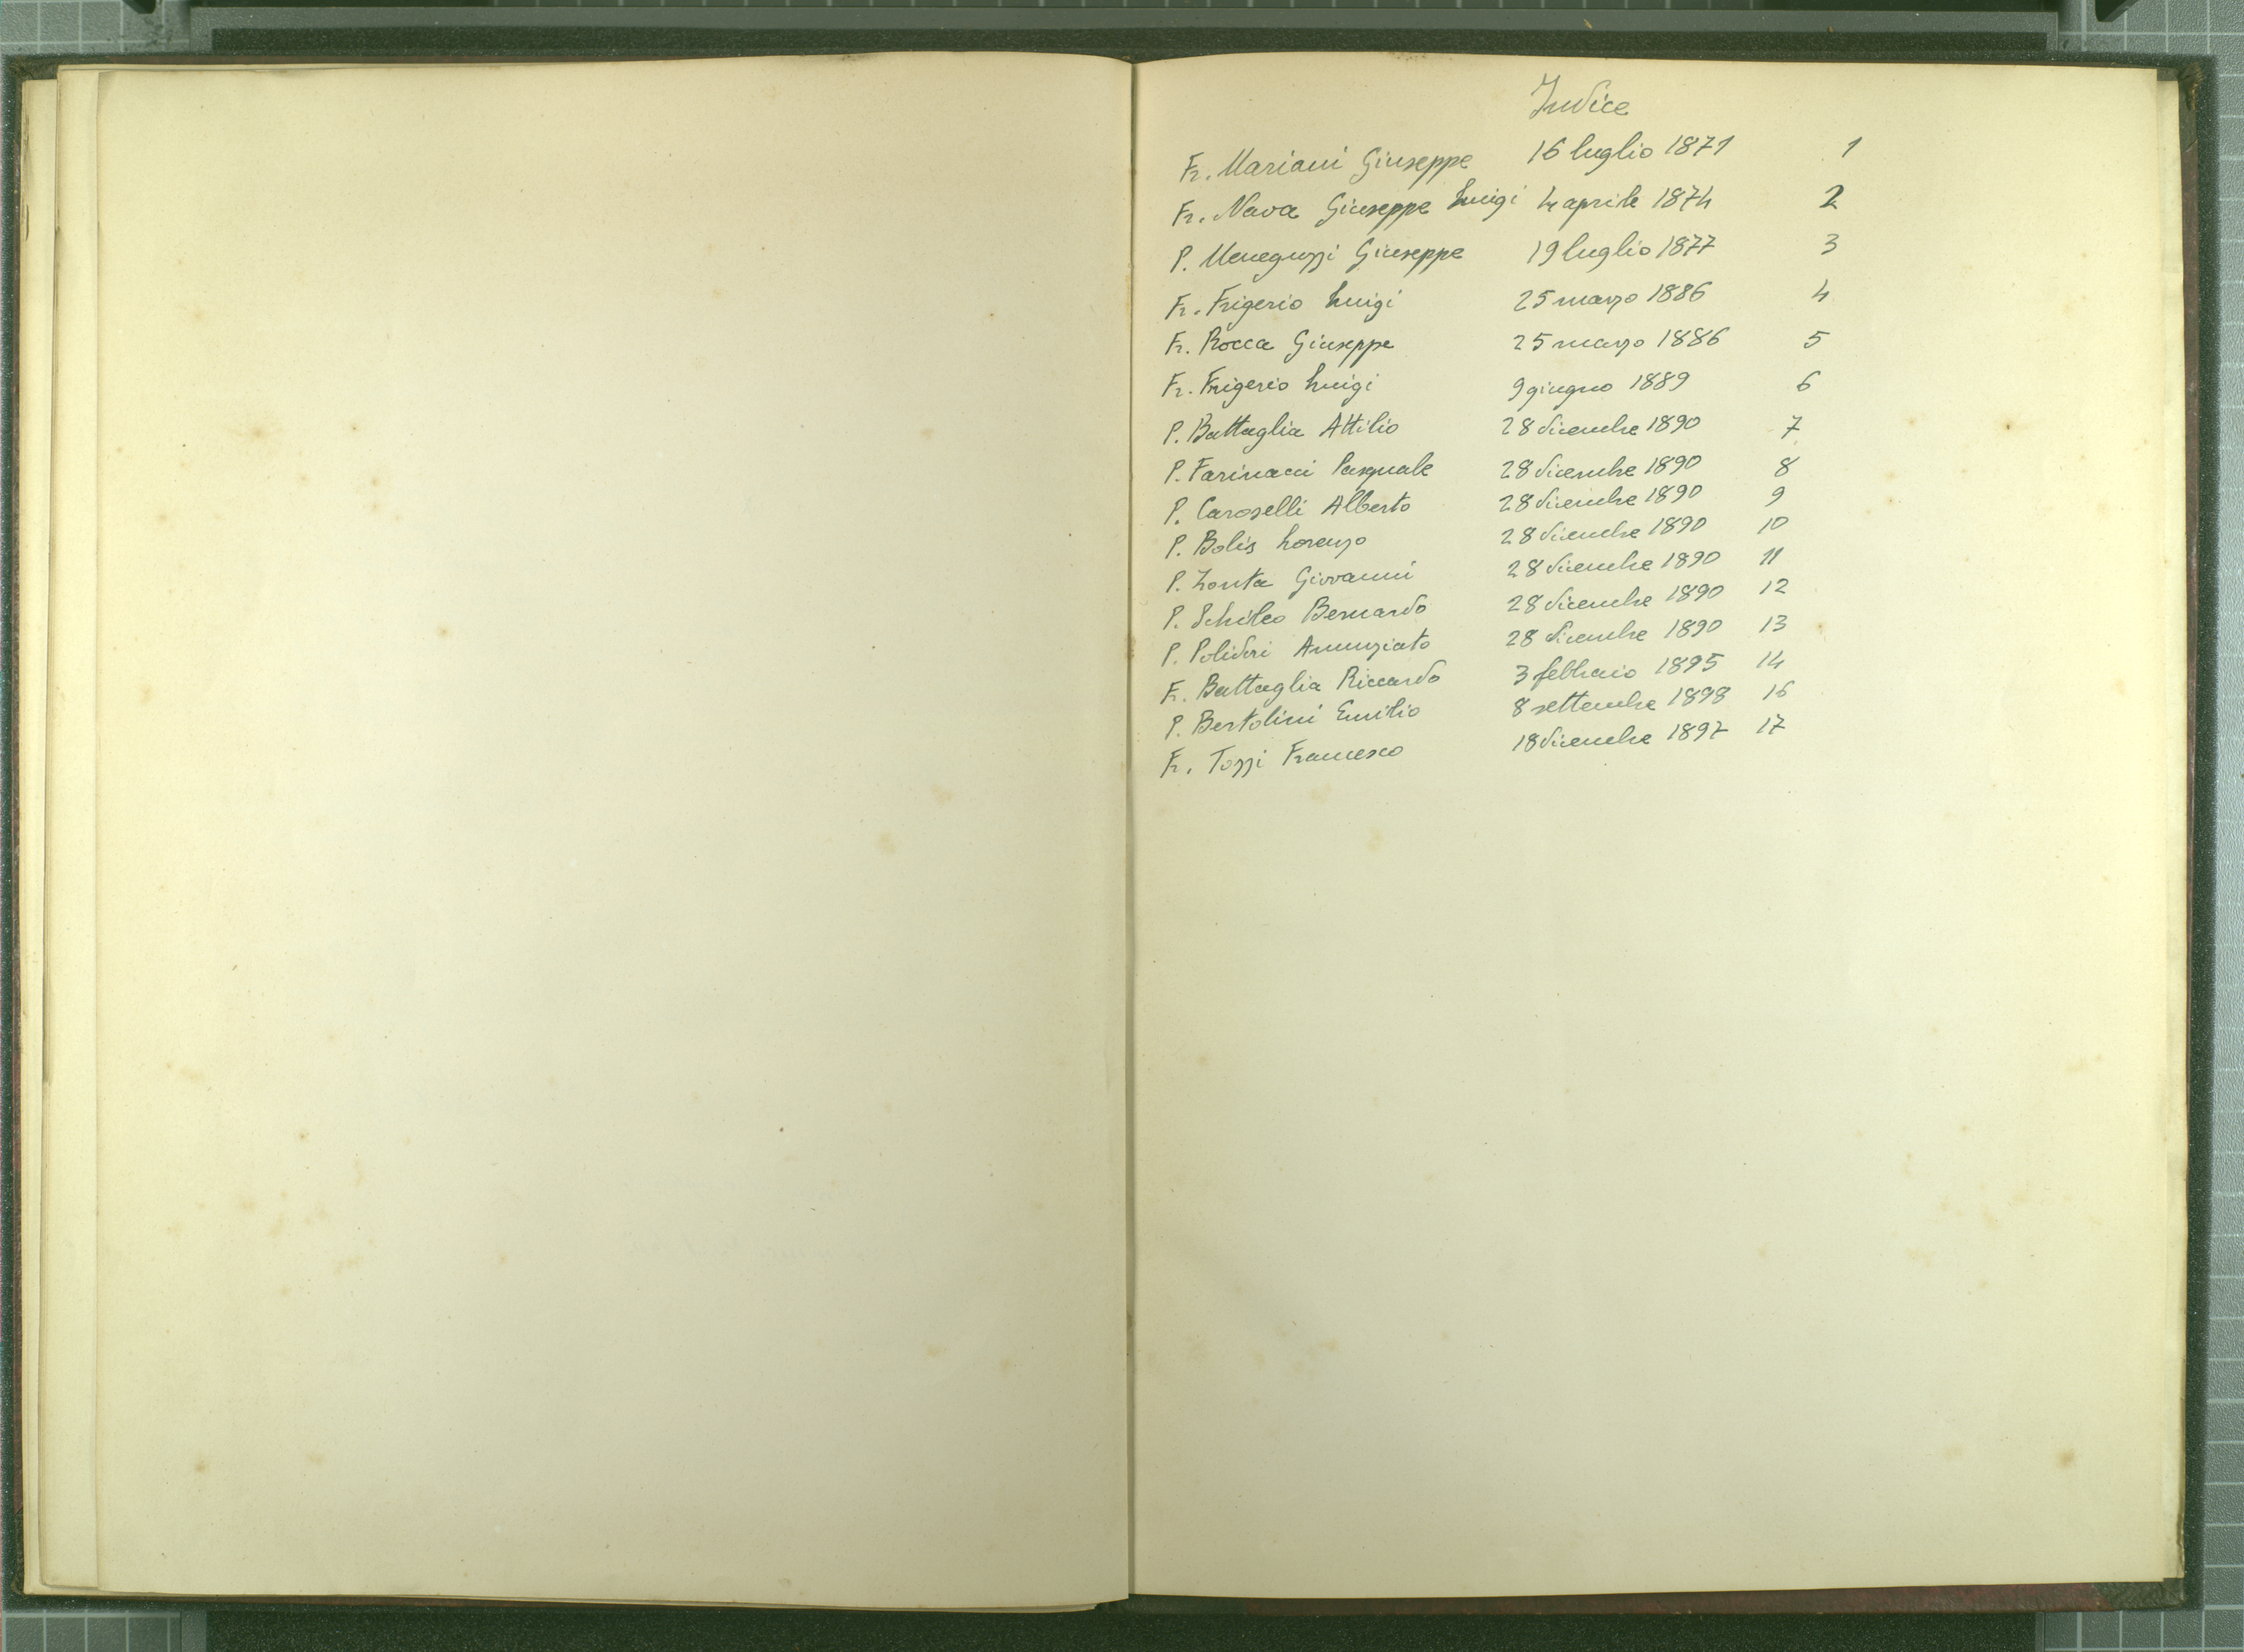 Indice
Fr. Mariani Giuseppe 16 luglio 1871 1
Fr. Nava Giuseppe Luigi 4 aprile 1874 2
P. Meneguzzi Giuseppe 19 luglio 1877 3
Fr. Frigerio Luigi 25 marzo 1886 4
Fr. Rocca Giuseppe 25 marzo 1886 5
Fr. Frigerio Luigi 9 giugno 1889 6
P. Battaglia Attilio 28 dicembre 1890 7
P. Farinacci Pasquale 28 dicembre 1890 8
P. Caroselli Alberto 28 dicembre 1890 9
P. Bolis Lorenzo 28 dicembre 1890 10
P. Zonta Giovanni 28 dicembre 1890 11
P. Schileo Bernardo 28 dicembre 1890 12
P. Polidori Annunziato 28 dicembre 1890 13
Fr. Battaglia Riccardo 3 febbraio 1895 14
P. Bertolini Emilio 8 settembre 1898 16
Fr. Tozzi Francesco 18 dicembre 1897 17